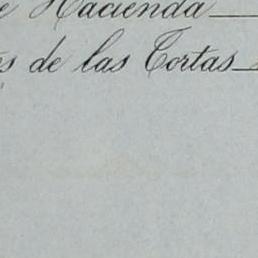 e Hacienda
s de las Tortas